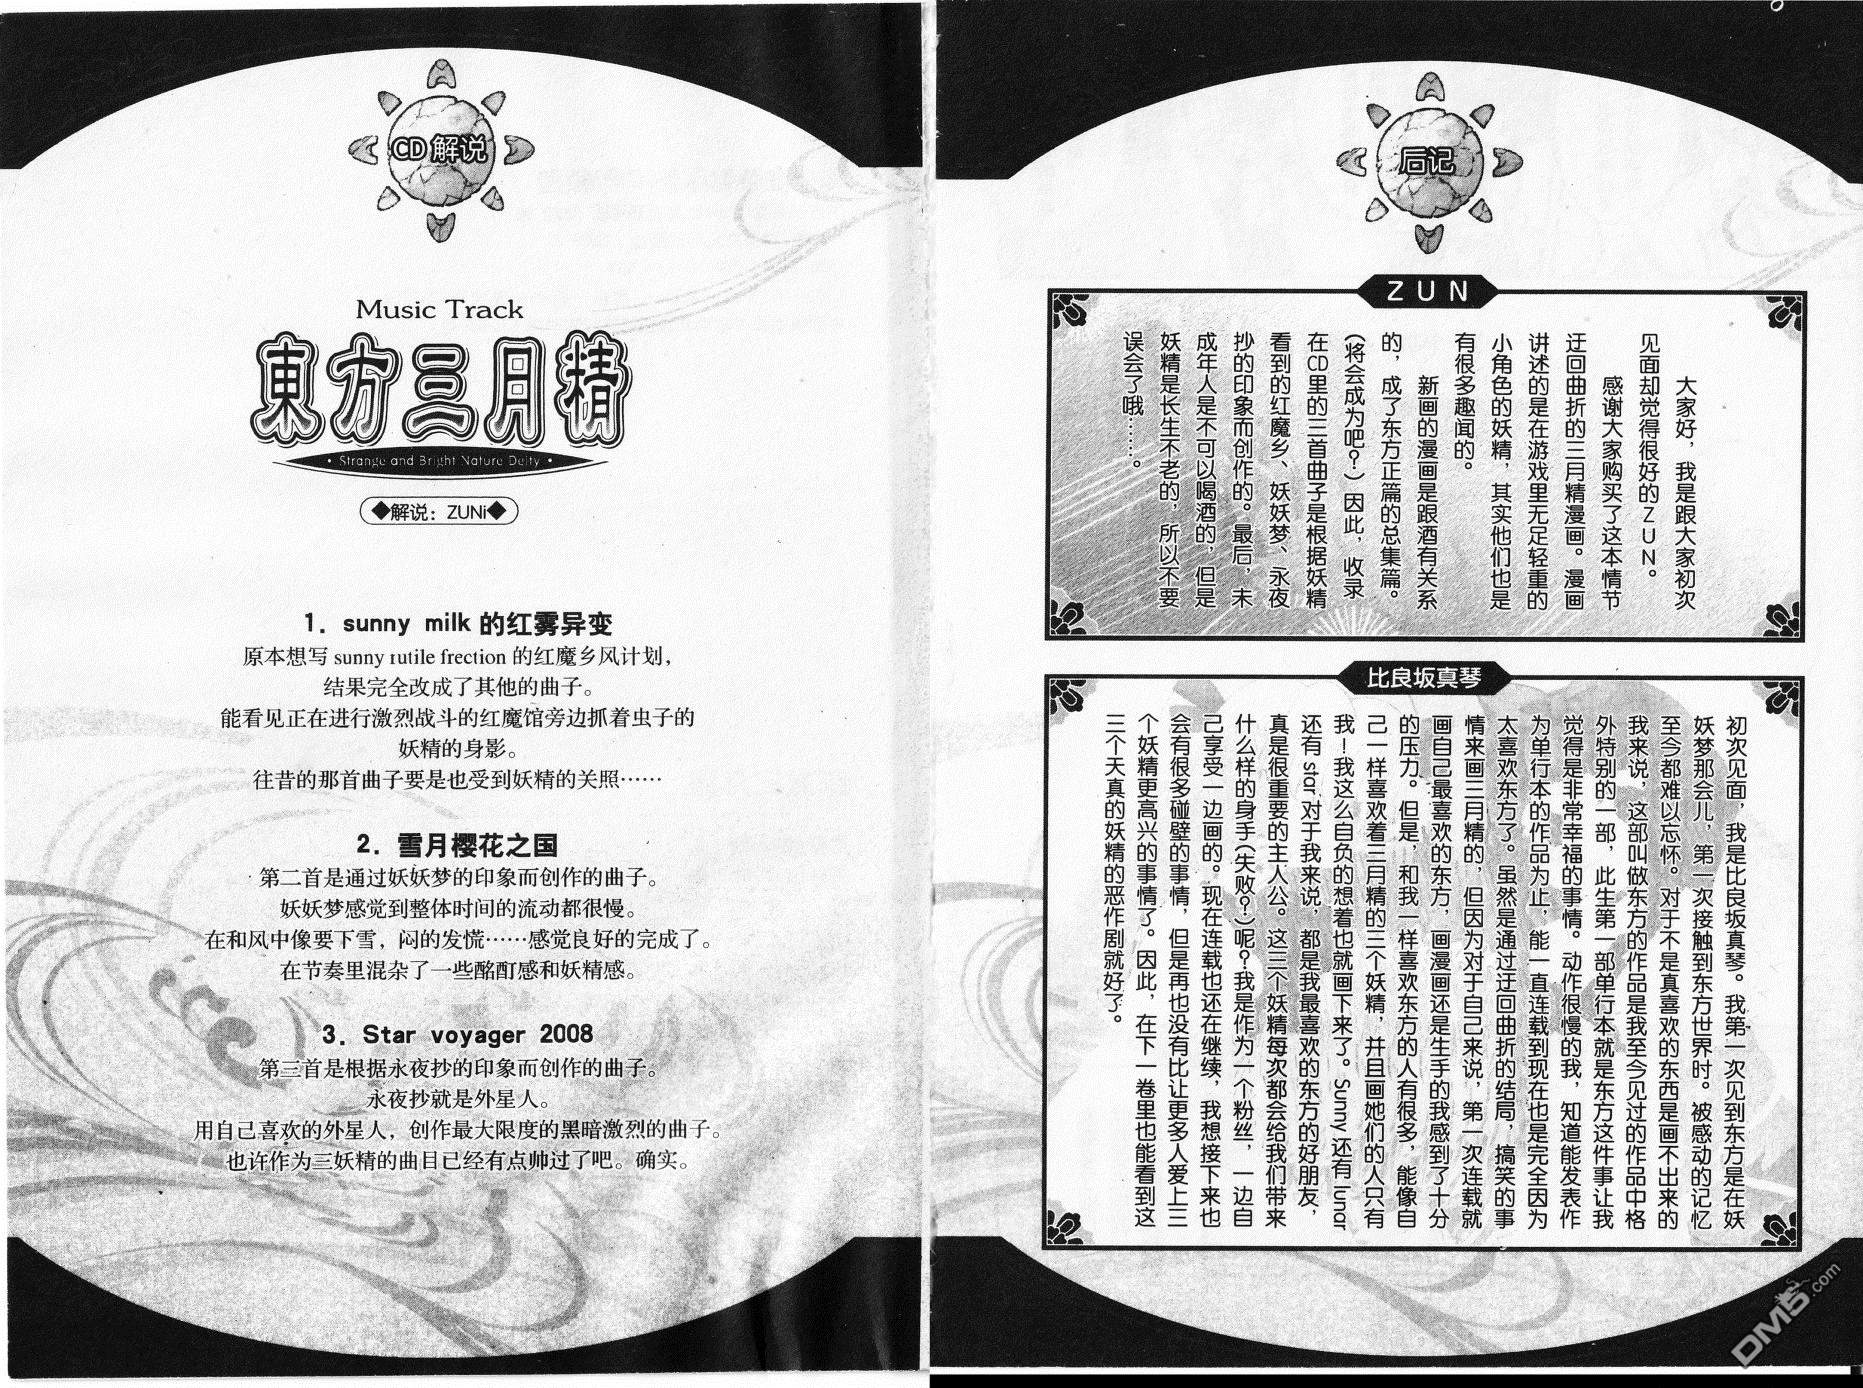 CD 解说
Music Track
東方三月精
· Strange and Bright Nature Deity ·
◆解说：ZUNi◆
1. sunny milk 的红雾异变
原本想写 sunny rutile frection 的红魔乡风计划，
结果完全改成了其他的曲子。
能看见正在进行激烈战斗的红魔馆旁边抓着虫子的
妖精的身影。
往昔的那首曲子要是也受到妖精的关照……
2. 雪月樱花之国
第二首是通过妖妖梦的印象而创作的曲子。
妖妖梦感觉到整体时间的流动都很慢。
在和风中像要下雪，闷的发慌……感觉良好的完成了。
在节奏里混杂了一些酩酊感和妖精感。
3. Star voyager 2008
第三首是根据永夜抄的印象而创作的曲子。
永夜抄就是外星人。
用自己喜欢的外星人，创作最大限度的黑暗激烈的曲子。
也许作为三妖精的曲目已经有点帅过了吧。确实。
后记
ZUN
大家好，我是跟大家初次
见面却觉得很好的ZUN。
感谢大家购买了这本情节
迂回曲折的三月精漫画。漫画
讲述的是在游戏里无足轻重的
小角色的妖精，其实他们也是
有很多趣闻的。
新画的漫画是跟酒有关系
的，成了东方正篇的总集篇。
（将会成为吧？）因此，收录
在CD里的三首曲子是根据妖精
看到的红魔乡、妖妖梦、永夜
抄的印象而创作的。最后，未
成年人是不可以喝酒的，但是
妖精是长生不老的，所以不要
误会了哦……。
比良坂真琴
初次见面，我是比良坂真琴。我第一次见到东方是在妖
妖梦那会儿，第一次接触到东方世界时。被感动的记忆
至今都难以忘怀。对于不是真喜欢的东西是画不出来的
我来说，这部叫做东方的作品是我至今见过的作品中格
外特别的一部，此生第一部单行本就是东方这件事让我
觉得是非常幸福的事情。动作很慢的我，知道能发表作
为单行本的作品为止，能一直连载到现在也是完全因为
太喜欢东方了。虽然是通过迂回曲折的结局，搞笑的事
情来画三月精的，但因为对于自己来说，第一次连载就
画自己最喜欢的东方，画漫画还是生手的我感到了十分
的压力。但是，和我一样喜欢东方的人有很多，能像自
己一样喜欢着三月精的三个妖精，并且画她们的人只有
我！我这么自负的想着也就画下来了。Sunny 还有 lunar
还有 star 对于我来说，都是我最喜欢的东方的好朋友，
真是很重要的主人公。这三个妖精每次都会给我们带来
什么样的身手（失败？）呢？我是作为一个粉丝，一边自
己享受一边画的。现在连载也还在继续，我想接下来也
会有很多碰壁的事情，但是再也没有比让更多人爱上三
个妖精更高兴的事情了。因此，在下一卷里也能看到这
三个天真的妖精的恶作剧就好了。
DM5.com